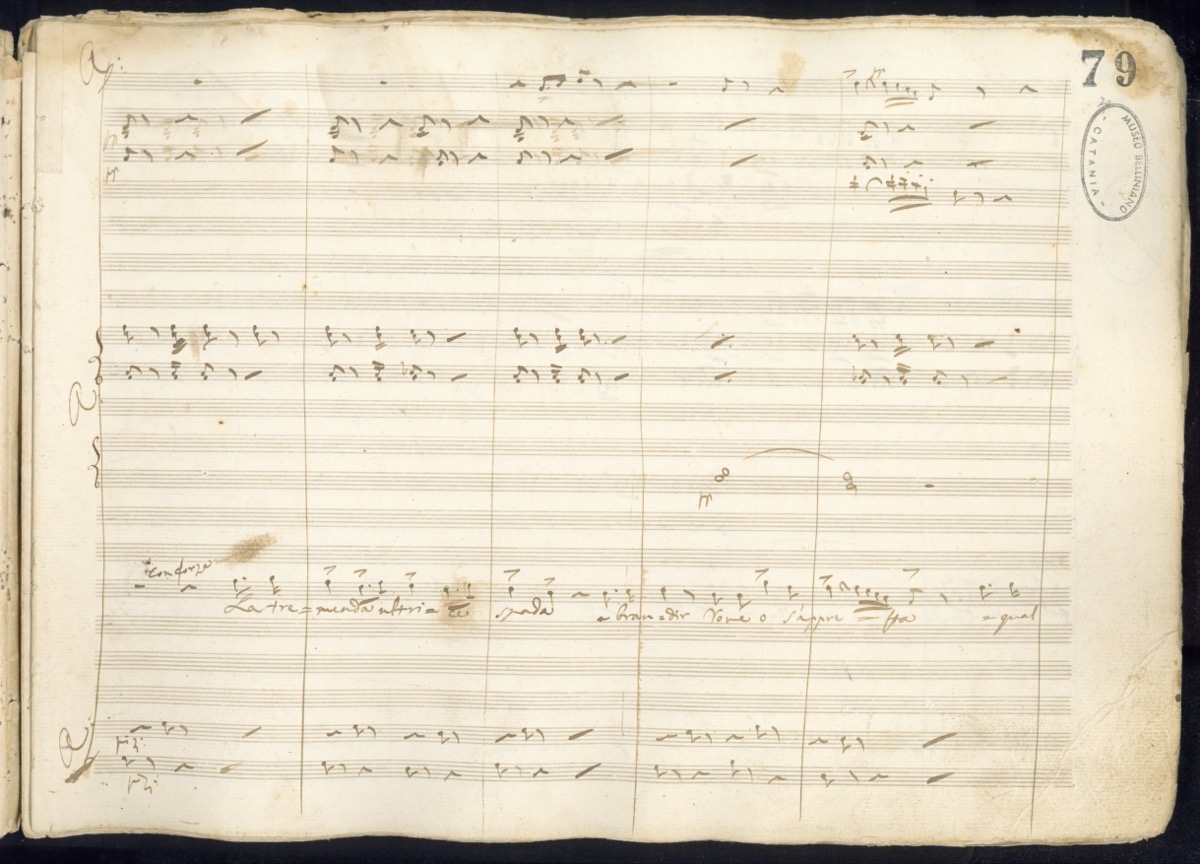 79
MUSEO BELLINIANO
- CATANIA -
con forza
La tre = menda ultri = ce spada a bran = dir Romeo s'appre = sta e qual